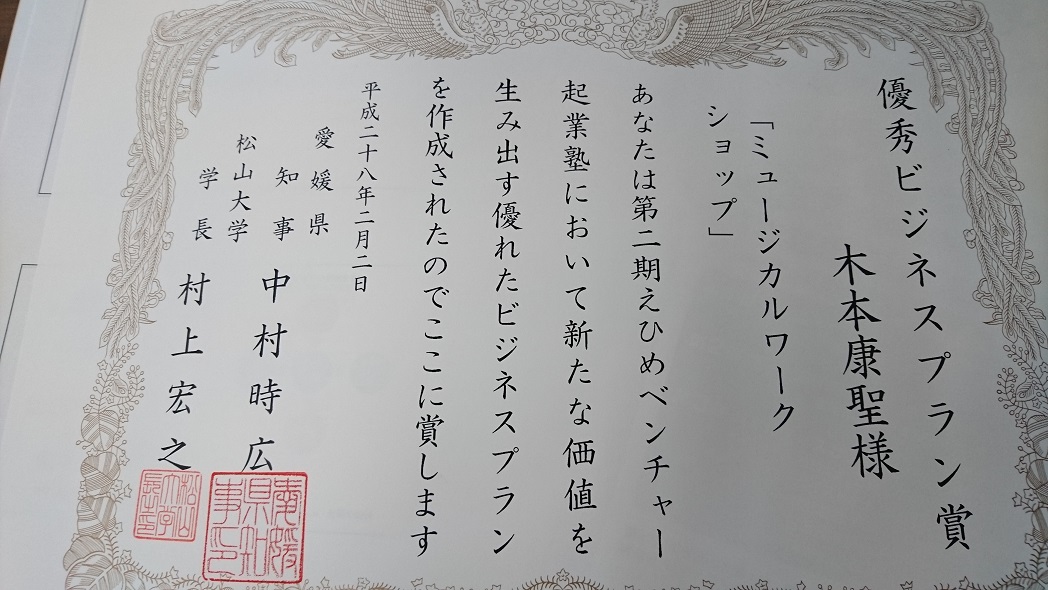 優秀ビジネスプラン賞
木本康聖様
「ミュージカルワーク
ショップ」
あなたは第二期えひめベンチャー
起業塾において新たな価値を
生み出す優れたビジネスプラン
を作成されたのでここに賞します
平成二十八年二月二日
愛媛県
知事 中村時広
松山大学
学長 村上宏之
愛媛県知事之印